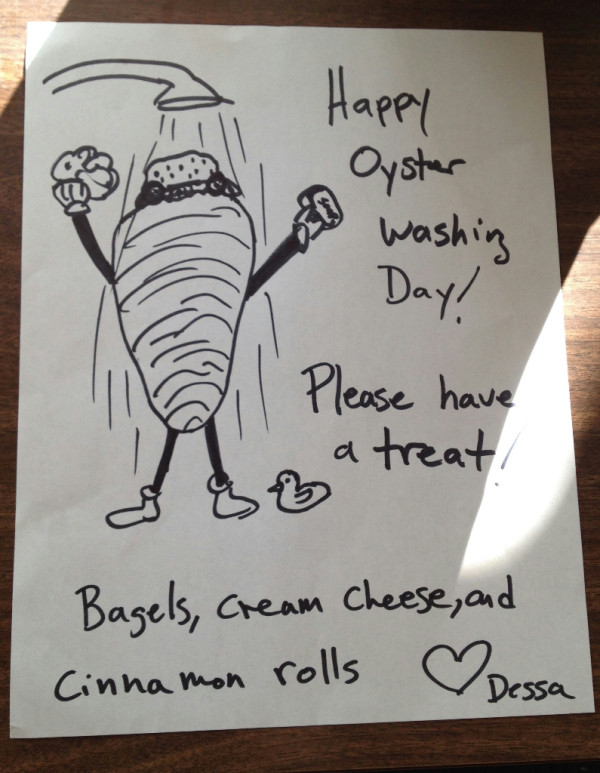 Happy
Oyster
Washing
Day!
Please have
a treat!
Bagels, cream cheese, and
cinnamon rolls
Dessa